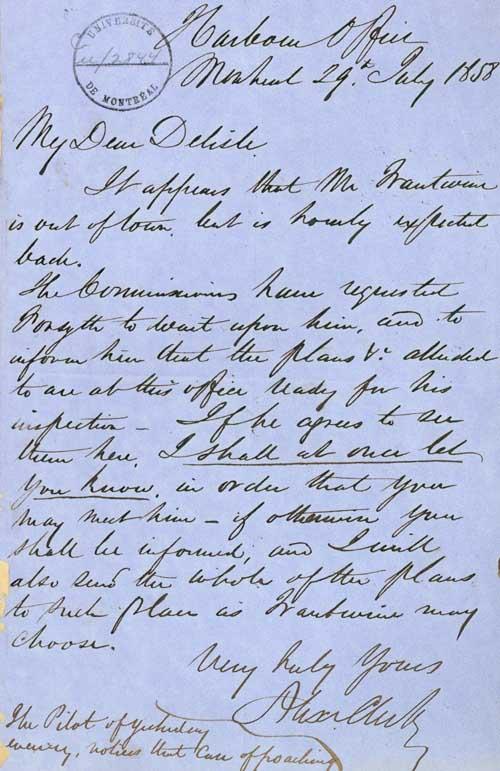 Harbour Office
Montreal 29th July 1858
UNIVERSITÉ
DE MONTRÉAL
My Dear Delisle
It appears that Mr Trautwine
is out of town, but is hourly expected
back.
The Commissioners have requested
Forsyth to wait upon him, and to
inform him that the plans &c alluded
to are at this office ready for his
inspection – If he agrees to see
them here, I shall at once let
you know, in order that you
may meet him – if otherwise you
shall be informed, and I will
also send the whole of the plans
to such place as Trautwine may
choose.
Very truly Yours
Alex Clerk
The Pilot of yesterday
evening, notices that Case of poaching